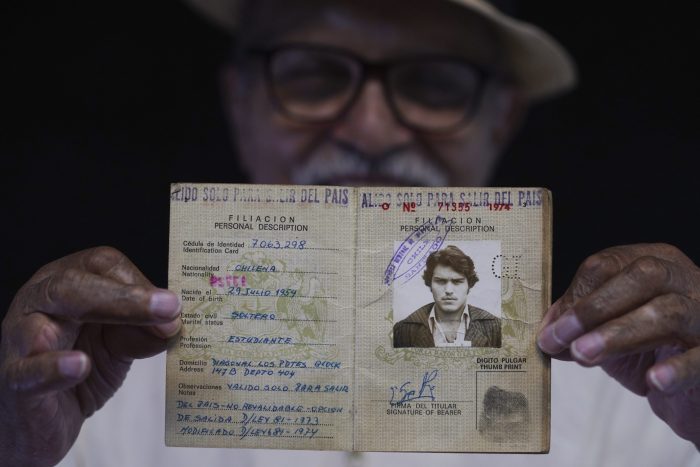 ALIDO SOLO PARA SALIR DEL PAIS
FILIACION
PERSONAL DESCRIPTION
Cédula de Identidad 7.063.298
Identification Card
Nacionalidad CHILENA
Nationality
Nacido el 29 JULIO 1954
Date of birth
Estado civil SOLTERO
Marital status
Profesión ESTUDIANTE
Profession
Domicilio DIAGONAL LOS BLOCK
Address 147B DEPTO 404
Observaciones VALIDO SOLO PARA SALIR
Notes
DEL PAIS - NO REVALIDABLE - OPCION
DE SALIDA D/LEY 81 - 1973
MODIFICADO D/LEY 684 - 1974
ALIDO SOLO PARA SALIR DEL PAIS
Nº 71355 1974
FILIACION
PERSONAL DESCRIPTION
DIGITO PULGAR
THUMB PRINT
FIRMA DEL TITULAR
SIGNATURE OF BEARER